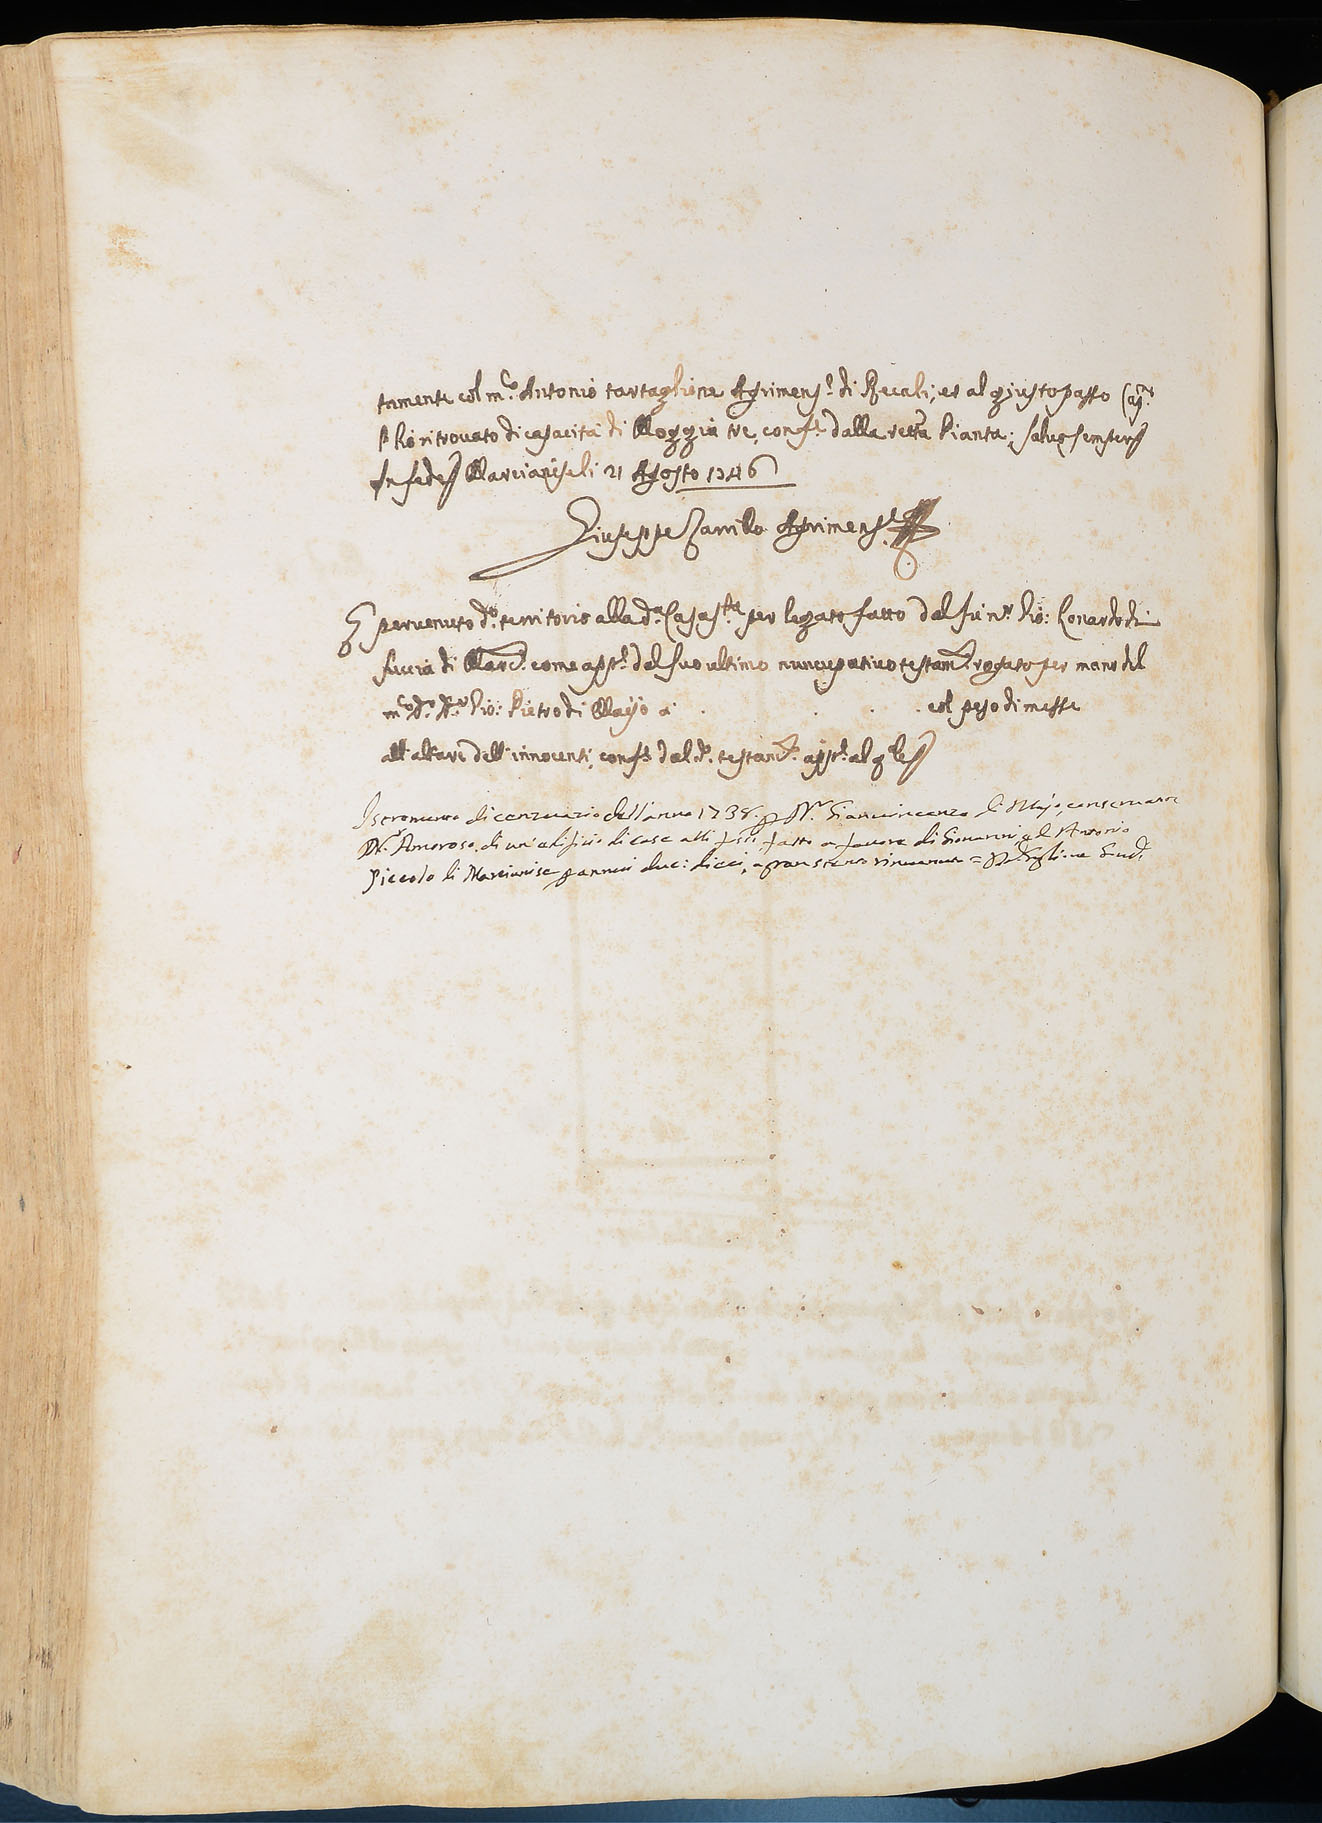 tamente col m.co Antonio tartaglione Agrimens.r di Recali; et al giusto passo Cap.no
l'hò ritrovato di capacità di Moggia tre, conf.e dalla rett.a Pianta; salvo semper
In fede Marcianiseli 21 Agosto 1746
Giuseppe Zarrillo Agrimens.re
È pervenuto d.o territorio alla d.a Casa S.ta per legato fatto dal fù n.r Gio: Lonardo di
fuccia di Marc.e come app.e dal suo ultimo nuncupativo testam.to rogato per mano del
m.co d.r N.r Gio: Pietro di Majo à . . . col peso di messe
all'altare dell'innocenti, conf.e dal d.o testam.to app.e al q.le
Istromento di cenzuario dell'anno 1738. p N.r Gianvincenzo di Majo, conservatore
N.r Amoroso, di un'edificio di case alli fatto a favore di Giovanni, ed Antonio
Piccolo di Marcianise p annui duc: dieci, =